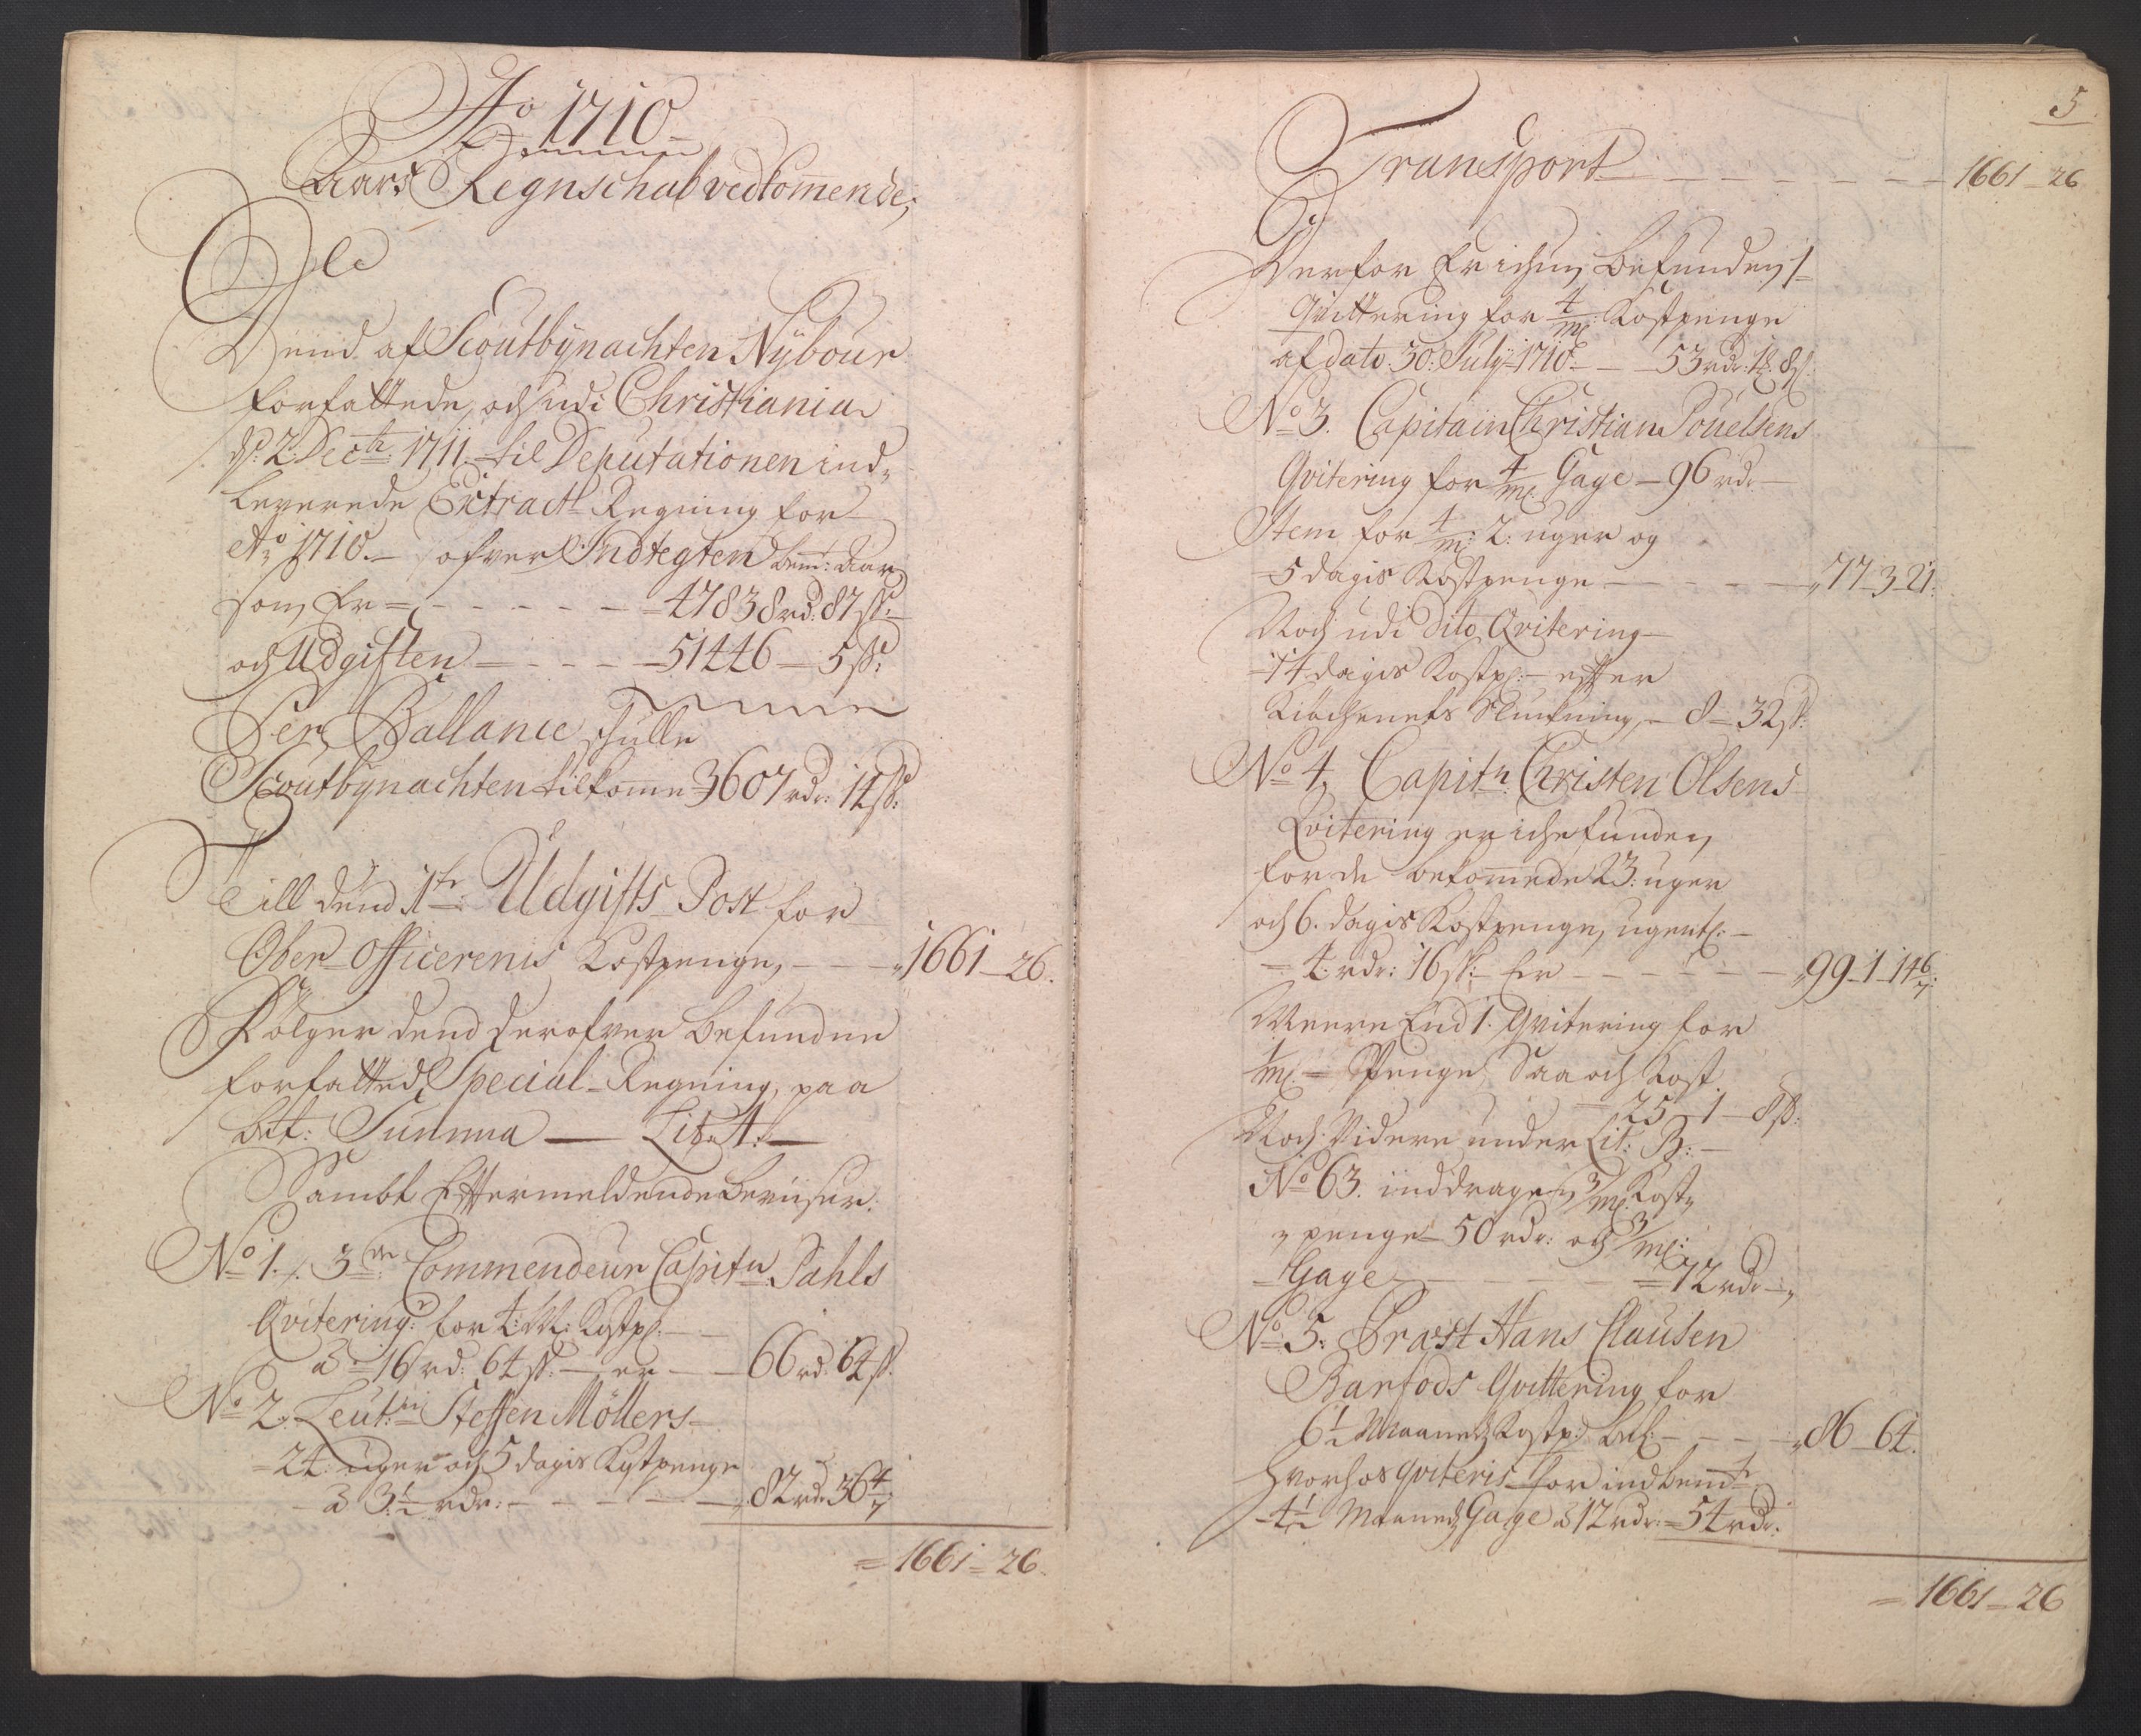 Ao 1710
Aars Regnschab vedkommende,
De
Dend af Scoutbynachten Nÿbour
forfattede, och udi Christiania
d: 2 Decbr: 1711. til Deputationen ind-
leverede Extract Regning for
Ao 1710. ofver Indtegten bemt: Aar
som Er = - - - - - 47838 rd: 87 ss:
och Udgiften - - - - 51446 - 5 ss:
Per Ballance skulle
Scoutbynachten tilkomme 3607 rdr: 14 ss:
Till dend 1te: Udgifts Post for
Ober-Officerenis Kostpenge, - - 1661 - 26.
Følger dend derofver befundne
forfatted Special-Regning, paa
bete: Summa - Litr A.
Sambt Eftermeldende beviiser.
No 1. /. 3de Commendeur Capitn Pahls
Qvitering: for 4: M: Kostp: -
à 16 rd: 64 ss: - er - 66 rd 64 ss.
No 2. Leutn: Steffen Möllers
24: uger och 5 dagis Kostpenge
à 3 1/2 rdr: - - - - 82 rdr 36 4/7
= 1661 - 26.
5
Transport - - - - - - 1661 - 26
Derfor Er iche befunden /
Qvittering for 4/m: Kostpenge
af dato 30: July 1710 - - 53 rdr: 1 8 ss
No 3. Capitain Christian Pouelsens
Qvitering for 4/m: Gage - 96 rdr -
Item for 4/m: 2: uger og
5 dagis Kostpenge - - - - 77 - 3 - 21.
Noch udi dito Qvitering
14 dagis Kostp: - efter
- 8 - 32 ss:
No 4, Capitn: Christen Olsens
Qvitering er iche funden
for de bekommede 23: uger
och 6. dagis Kostpenge, ugentl: -
4. rdr: 16 ss: - Er - - - - 99 - 1 - 14 6/7
Meere End 1. Qvitering for
1/m: = Penge Saa och Kost
25 - 1 - 8 ss:
Noch Videre under Lit: B: -
No 63. inddragen 3/m: Kost-
penge 50 rdr: och 3/m:
Gage - - - = 72 rdr -
No 5: Præst Hans Clausen
Barfods Qvittering for
6 1/2 Maaned Kostp: - - - 86 - 64.
hvorhos qviteris for indbemte
4 1/2 Maaned Gage à 12 rdr: = 54 rdr.
= 1661 - 26